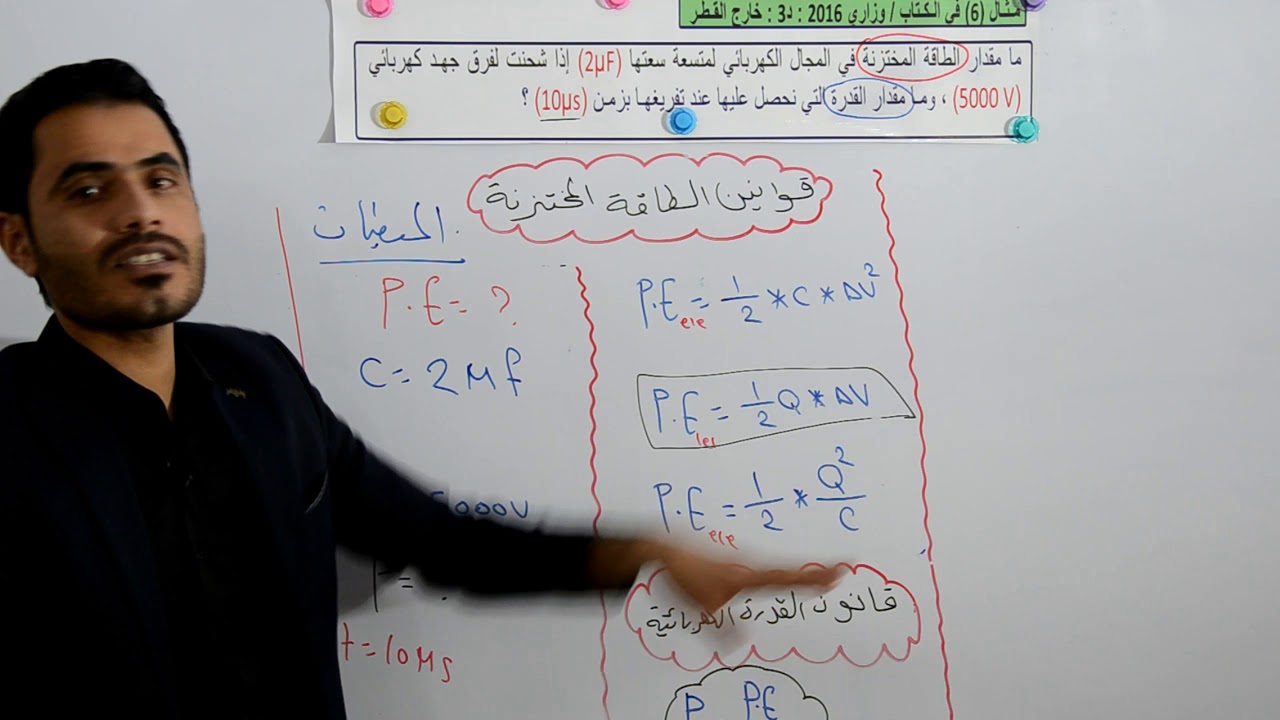 مثال (6) في الكتاب / وزاري 2016 : د3 : خارج القطر
ما مقدار الطاقة المختزنة في المجال الكهربائي لمتسعة سعتها (2μF) إذا شحنت لفرق جهد كهربائي
(5000 V) ، وما مقدار القدرة التي نحصل عليها عند تفريغها بزمن (10μs) ؟
قوانين الطاقة المختزنة
P.Eele = 1/2 * C * ΔV²
P.Eele = 1/2 Q * ΔV
P.Eele = 1/2 * Q²/C
قانون القدرة الكهربائية
P P.E
المعطيات
P.E = ?
C = 2 Mf
5000V
P =
t = 10 Ms